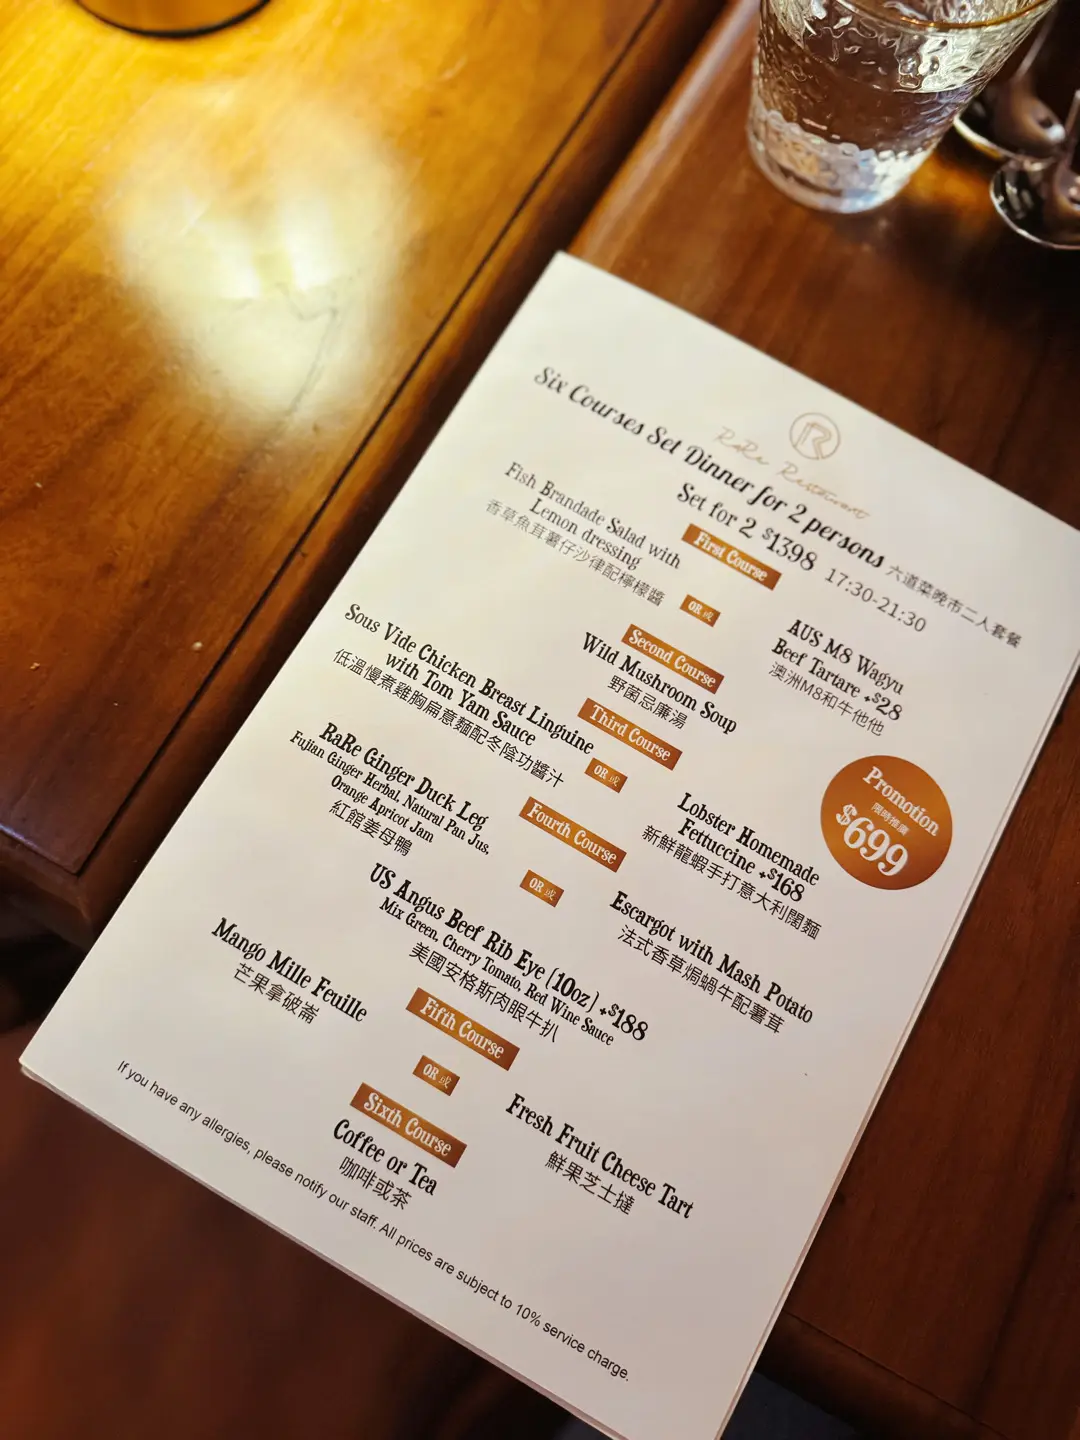 R
RaRe Restaurant
Six Courses Set Dinner for 2 persons 六道菜晚市二人套餐
Set for 2 $1398 17:30-21:30
First Course
Fish Brandade Salad with
Lemon dressing
香草魚茸薯仔沙律配檸檬醬
OR 或
AUS M8 Wagyu
Beef Tartare +$28
澳洲M8和牛他他
Second Course
Wild Mushroom Soup
野菌忌廉湯
Third Course
Sous Vide Chicken Breast Linguine
with Tom Yam Sauce
低溫慢煮雞胸扁意麵配冬陰功醬汁
OR 或
Lobster Homemade
Fettuccine +$168
新鮮龍蝦手打意大利闊麵
Promotion
限時推廣
$699
Fourth Course
RaRe Ginger Duck Leg
Fujian Ginger Herbal, Natural Pan Jus,
Orange Apricot Jam
紅館姜母鴨
OR 或
Escargot with Mash Potato
法式香草焗蝸牛配薯茸
US Angus Beef Rib Eye (10oz) +$188
Mix Green, Cherry Tomato, Red Wine Sauce
美國安格斯肉眼牛扒
Fifth Course
Mango Mille Feuille
芒果拿破崙
OR 或
Fresh Fruit Cheese Tart
鮮果芝士撻
Sixth Course
Coffee or Tea
咖啡或茶
If you have any allergies, please notify our staff. All prices are subject to 10% service charge.